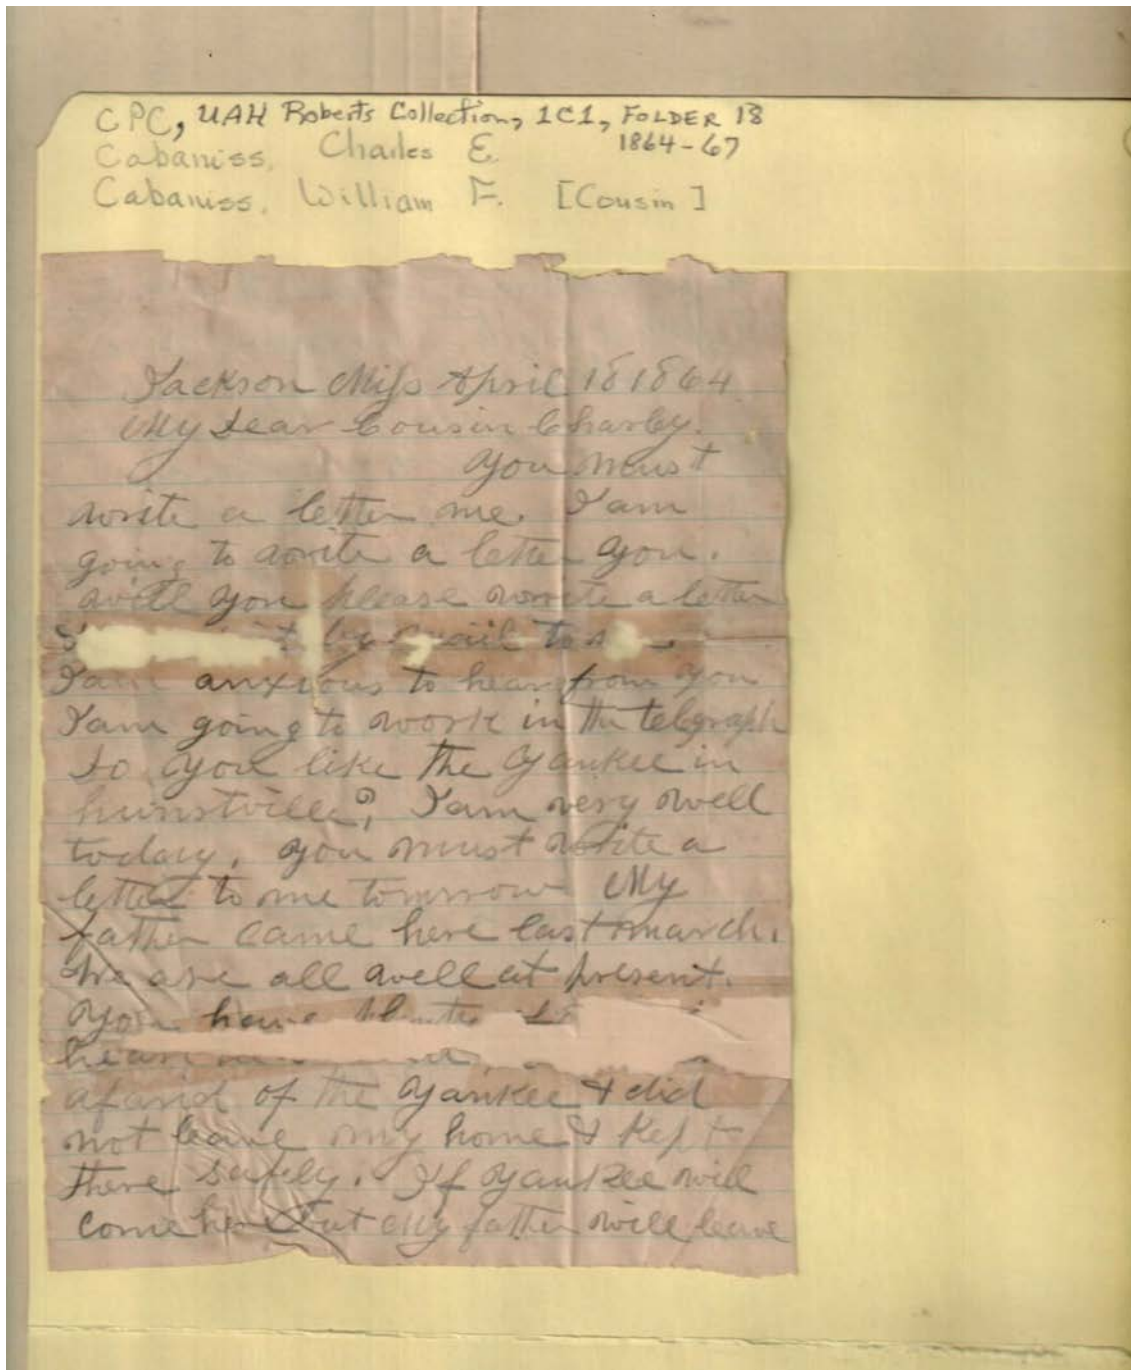 CPC, UAH Roberts Collection, 1C1, FOLDER 18
1864-67
Cabaniss, Charles E.
Cabaniss, William F. [Cousin]
Jackson Miss April 18 1864
My Dear Cousin Charley.
You must
write a letter me. I am
going to write a letter you.
will you please write a letter
by mail to
I am anxious to hear from you
I am going to work in the telgraph
Do you like the Yankee in
hunstville? I am very well
today. You must write a
letter to me tomrrow My
father came here last march.
We are all well at present.
You have
hear
afarid of the Yankee & did
not leave my home & Kept
there safely. If Yankee will
come here but My father will leave